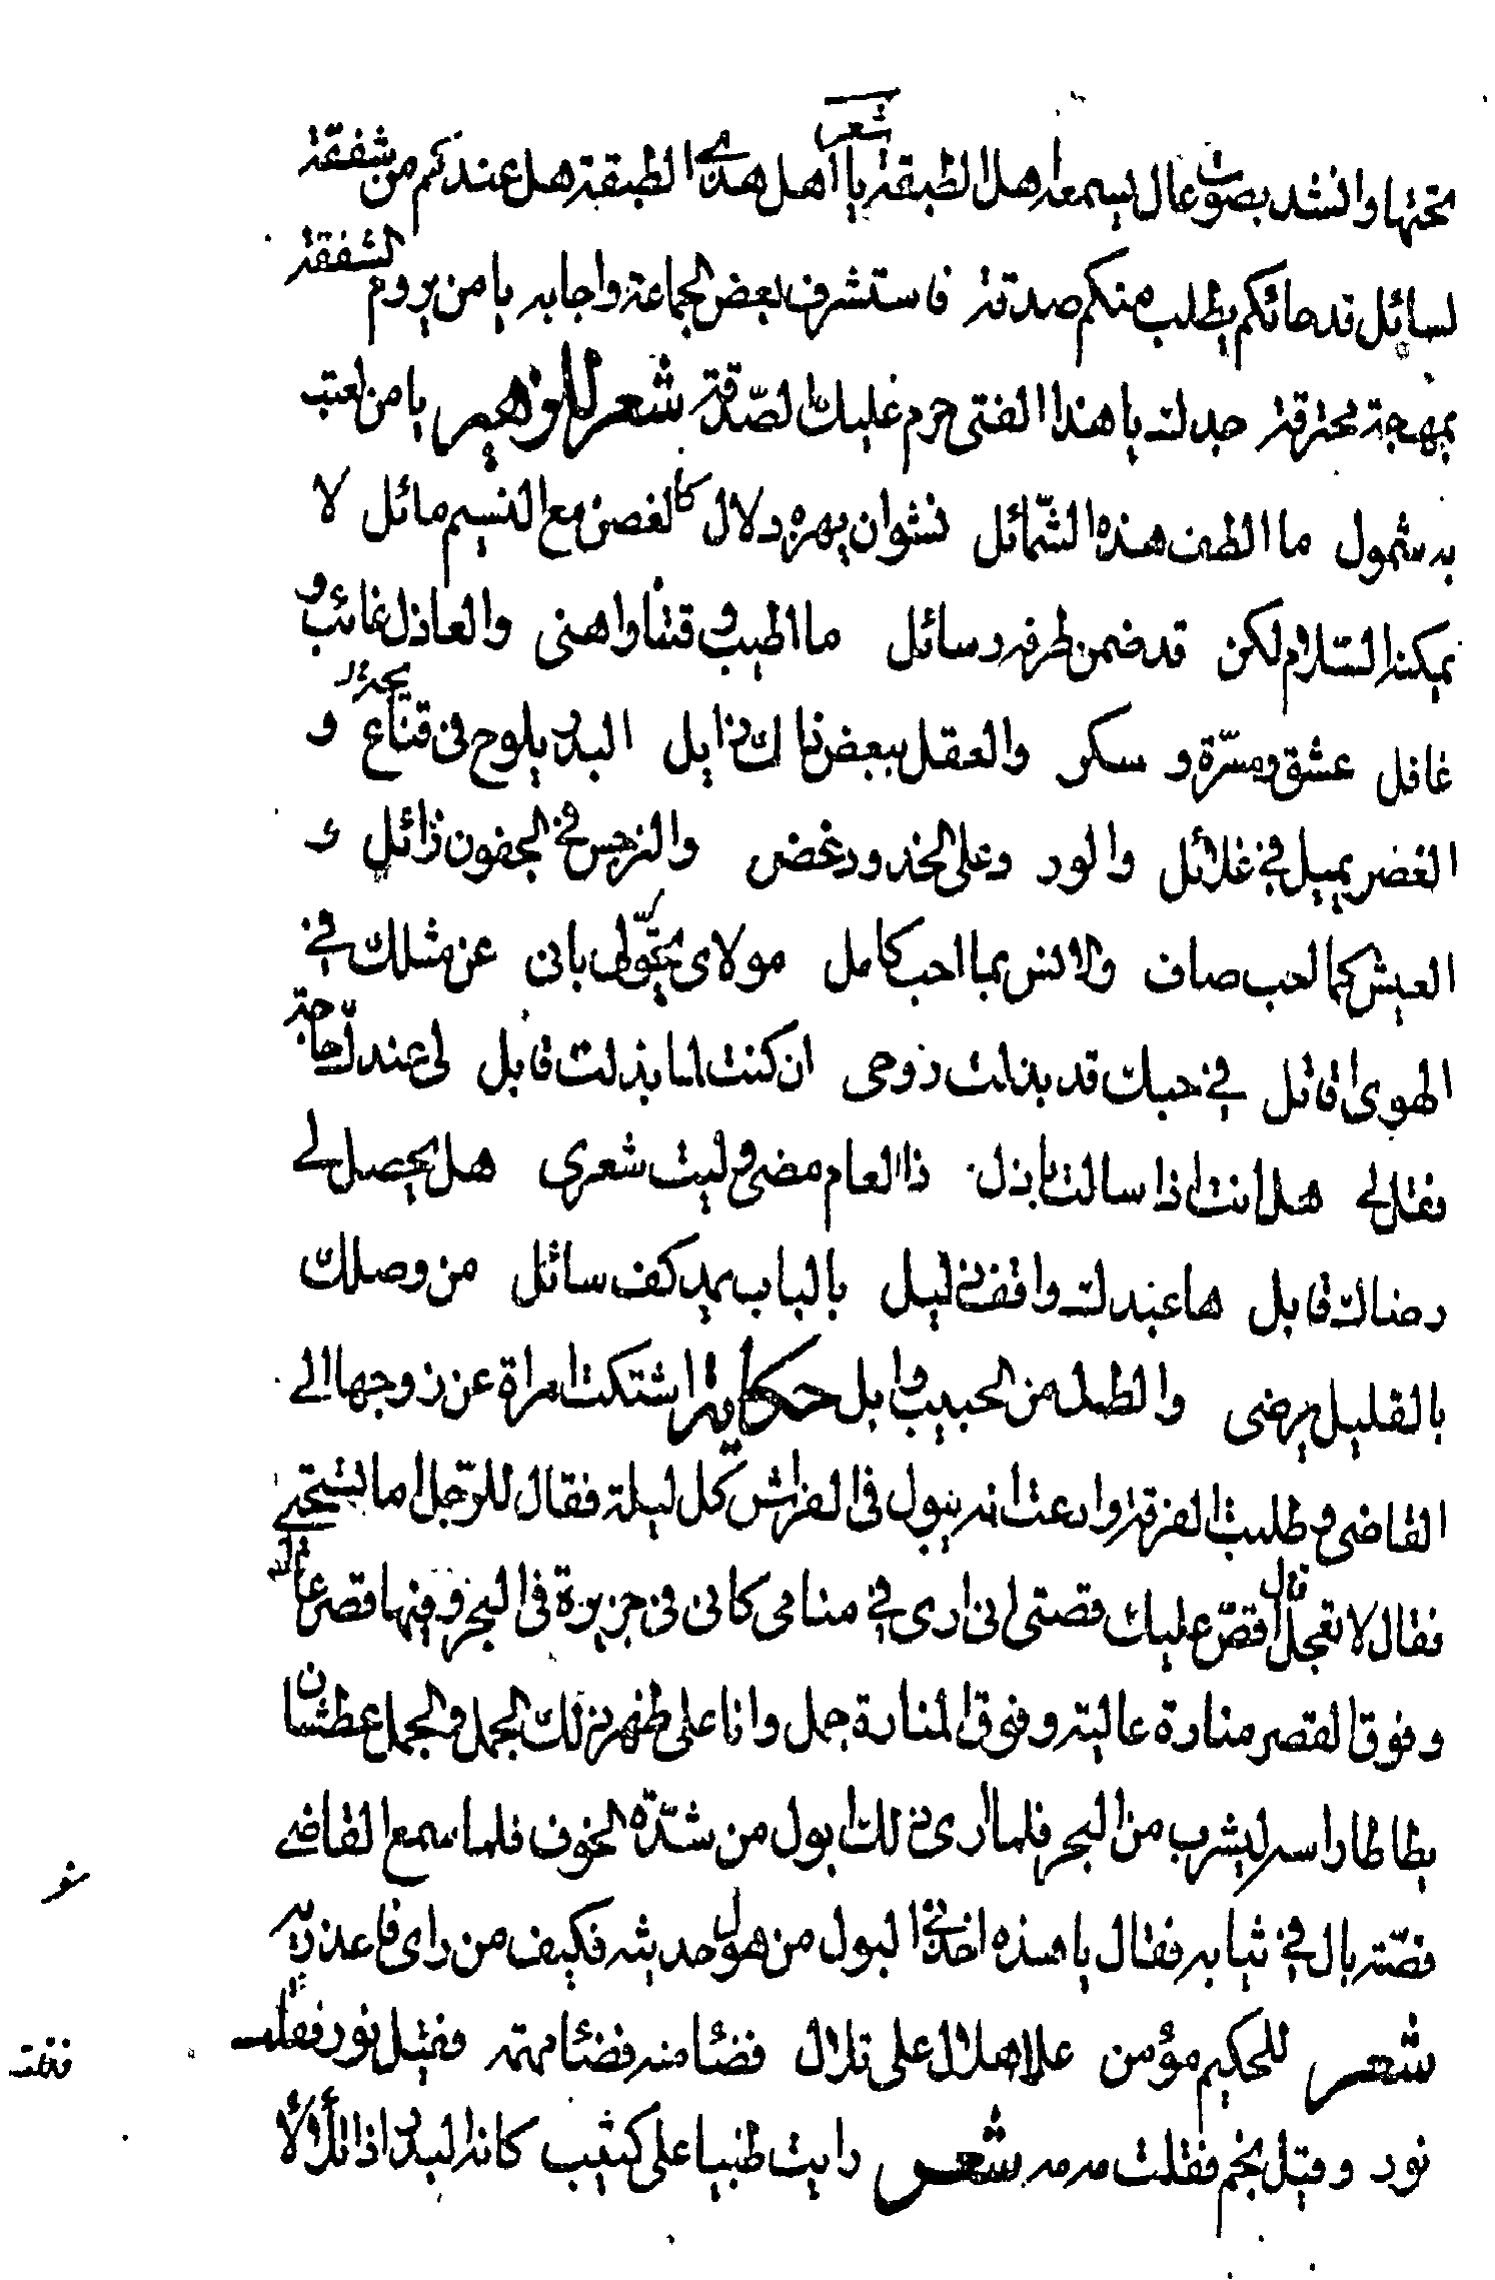 تحتها وانشد بصوت عال يسمعه اهل الطبقة شعر يا اهل هذى الطبقة هل عندكم من شفقة
لسائل قد جائكم يطلب منكم صدقة فاستشرف بعض الجماعة واجابه يا من يروم الشفقة
بمهجة محترقة جدك يا هذا الفتى حرم عليك الصّدقة شعر للزهير يا من لعبت
به شمول ما الطف هذه الشّمائل نشوان يهزه دلال كالغصن مع النسيم مائل لا
يمكنه السّلام لكن قد ضمن طرفه رسائل ما اطيب وقتنا واهنى والعاذل غائب و
غافل عشق ومسّرة و سكر والعقل ببعض ذاك زايل البدر يلوح فى قناع و
الغصن يميل فى غلائل والورد على الخدود غض والنرجس فى الجفون ذائل و
العيش كما احب صاف والانس بما احب كامل مولاى يحق لى بانى عن مثلك فى
الهوى اقاتل فى حبك قد بذلت روحى ان كنت لما بذلت قابل لى عندك حاجة
فقل لى هل انت اذا سالت باذل ذا العام مضى وليت شعرى هل يحصل لى
رضاك قابل ها عبدك واقف ذليل بالباب يمد كف سائل من وصلك
بالقليل يرضى والطل من الحبيب وابل حكاية اشتكت امراة عن زوجها الى
القاضى وطلبت الفرقة وادعت انه يبول فى الفراش كل ليلة فقال للرّجل اما تستحى
فقال لا تعجل اقصّ عليك قصتى انى ارى فى منامى كانى فى جزيرة فى البحر وفيها قصر عال
وفوق القصر منارة عالية وفوق المنارة جمل وانا على ظهر ذلك الجمل والجمل عطشان
يطاطا راسه ليشرب من البحر فلما ارى ذلك ابول من شدّة الخوف فلما سمع القاضى
قصّته بال فى ثيابه فقال يا هذه اخذنى البول من هول حديثه فكيف من راى فاعذريه
شعر للحكيم مؤمن علا هلال على تلال فضئا منه فضئا مهمه فقيل نور فقلت
نور وقيل نجم فقلت مه مه شعر رايت ظبيا على كثيب كانه البدر اذا تلألأ
فقلت